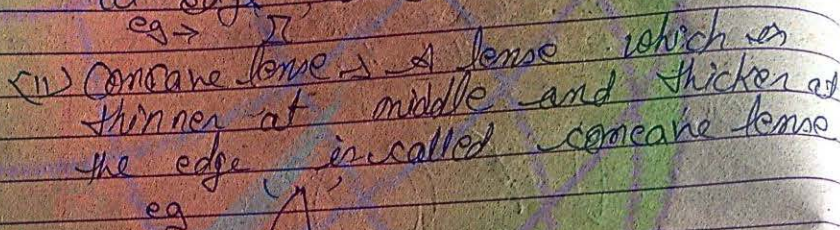 eg →
(ii) Concave lense → A lense which is
thinner at middle and thicker at
the edge is called concave lense
eg